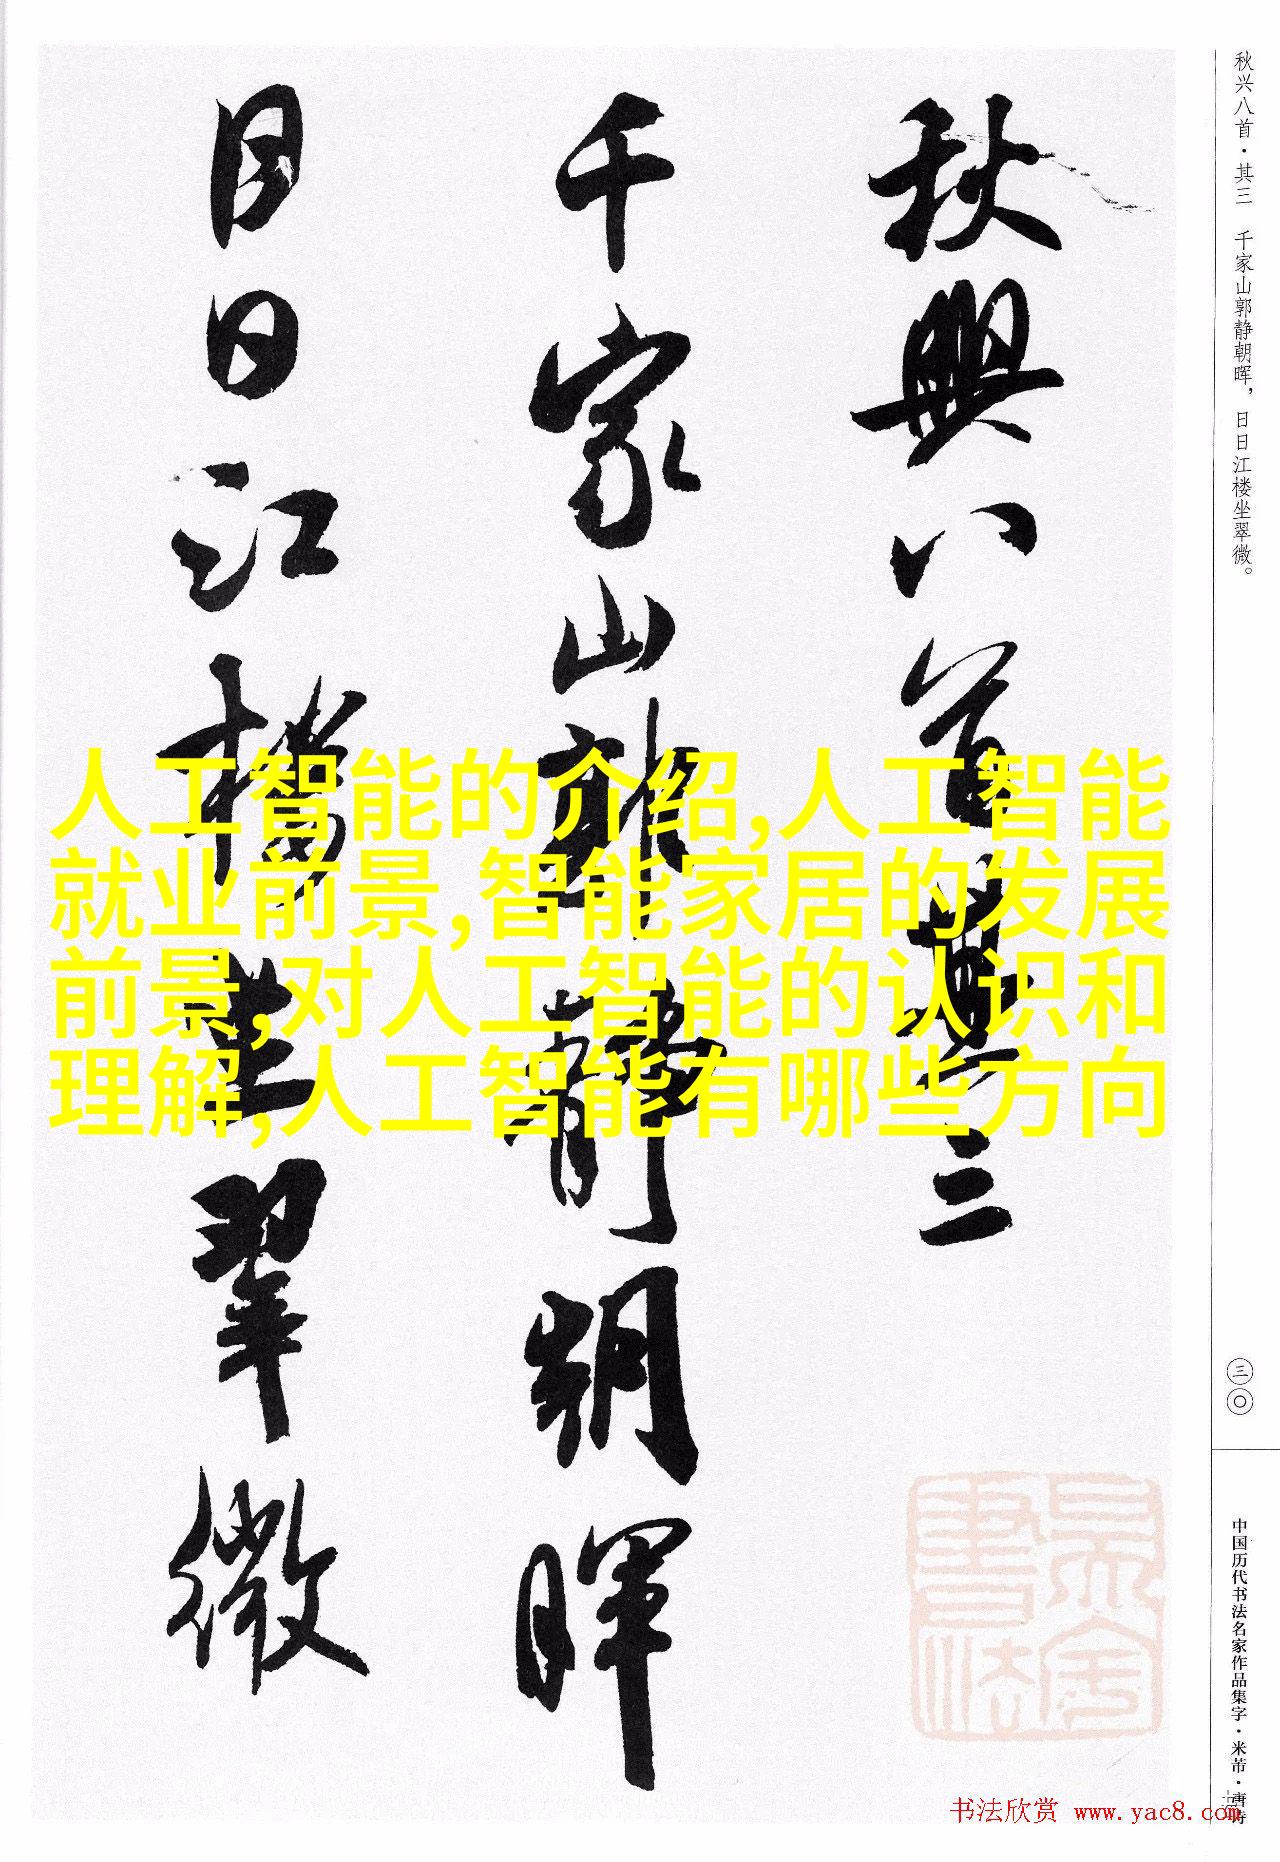 秋兴八首·其三　千家山郭静朝晖，日日江楼坐翠微。
秋興八首其三
千家山郭靜朝暉
日日江樓坐翠微
人工智能的介绍,人工智能
就业前景,智能家居的发展
前景,对人工智能的认识和
理解,人工智能有哪些方向
三〇
中国历代书法名家作品集字·米芾·唐诗
书法欣赏 www.yac8.com